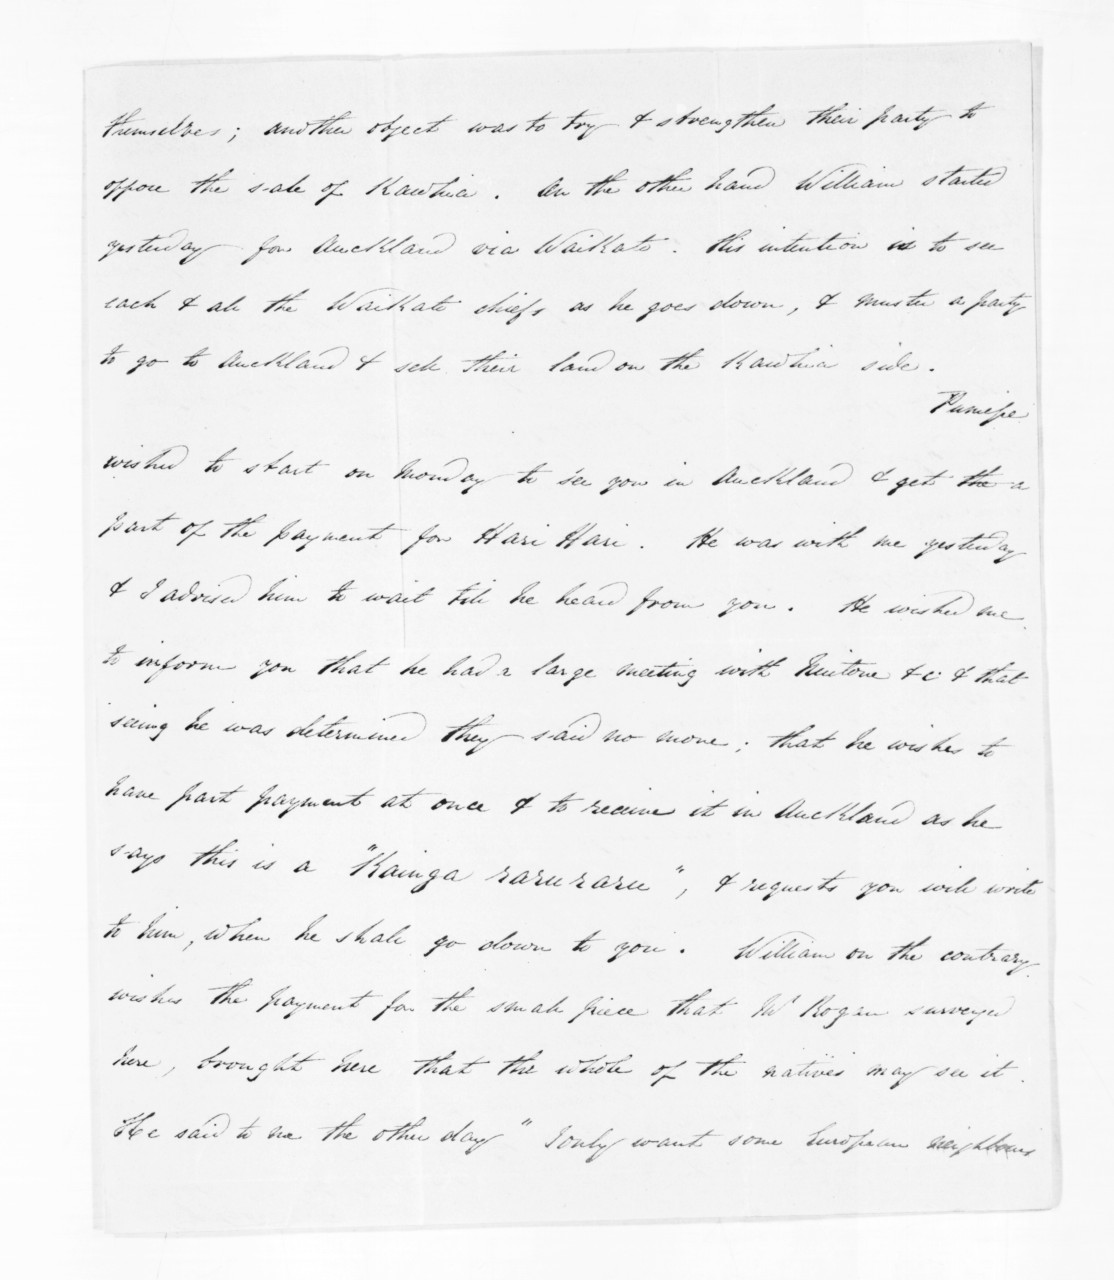 themselves; another object was to try & strengthen their party to
oppose the sale of Kawhia. On the other hand William started
yesterday for Auckland via WaiKato. His intention is to see
each & all the WaiKato chiefs as he goes down, & muster a party
to go to Auckland & sell their land on the Kawhia side.
wished to start on Monday to see you in Auckland & get the a
part of the payment for Hari Hari. He was with me yesterday
& I advised him to wait till he heard from you. He wished me
to inform you that he had a large meeting with &c & that
seeing he was determined they said no more; that he wishes to
have part payment at once & to receive it in Auckland as he
says this is a "Kainga raruraru", & requests you will write
to him, when he shall go down to you. William on the contrary
wishes the payment for the small piece that Mr Rogan surveyed
here, brought here that the whole of the natives may see it.
He said to me the other day "I only want some European neighbours